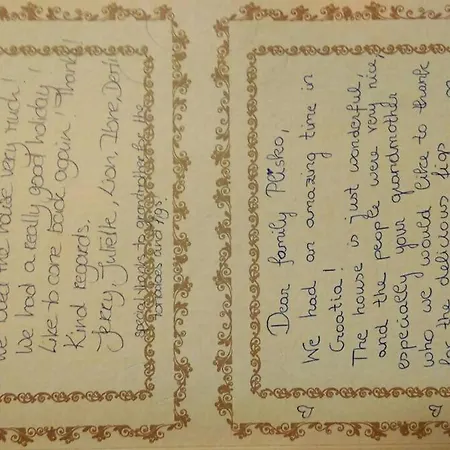 the house very much!
We had a really good holiday!
like to come back again! Thanks!
Kind regards,
special thanks to grandmother for the
tomatoes and figs
Dear family Plisko,
We had an amazing time in
Croatia!
The house is just wonderful,
and the people were very nice,
especially your grandmother
who we would like to thank
for the delicious figs